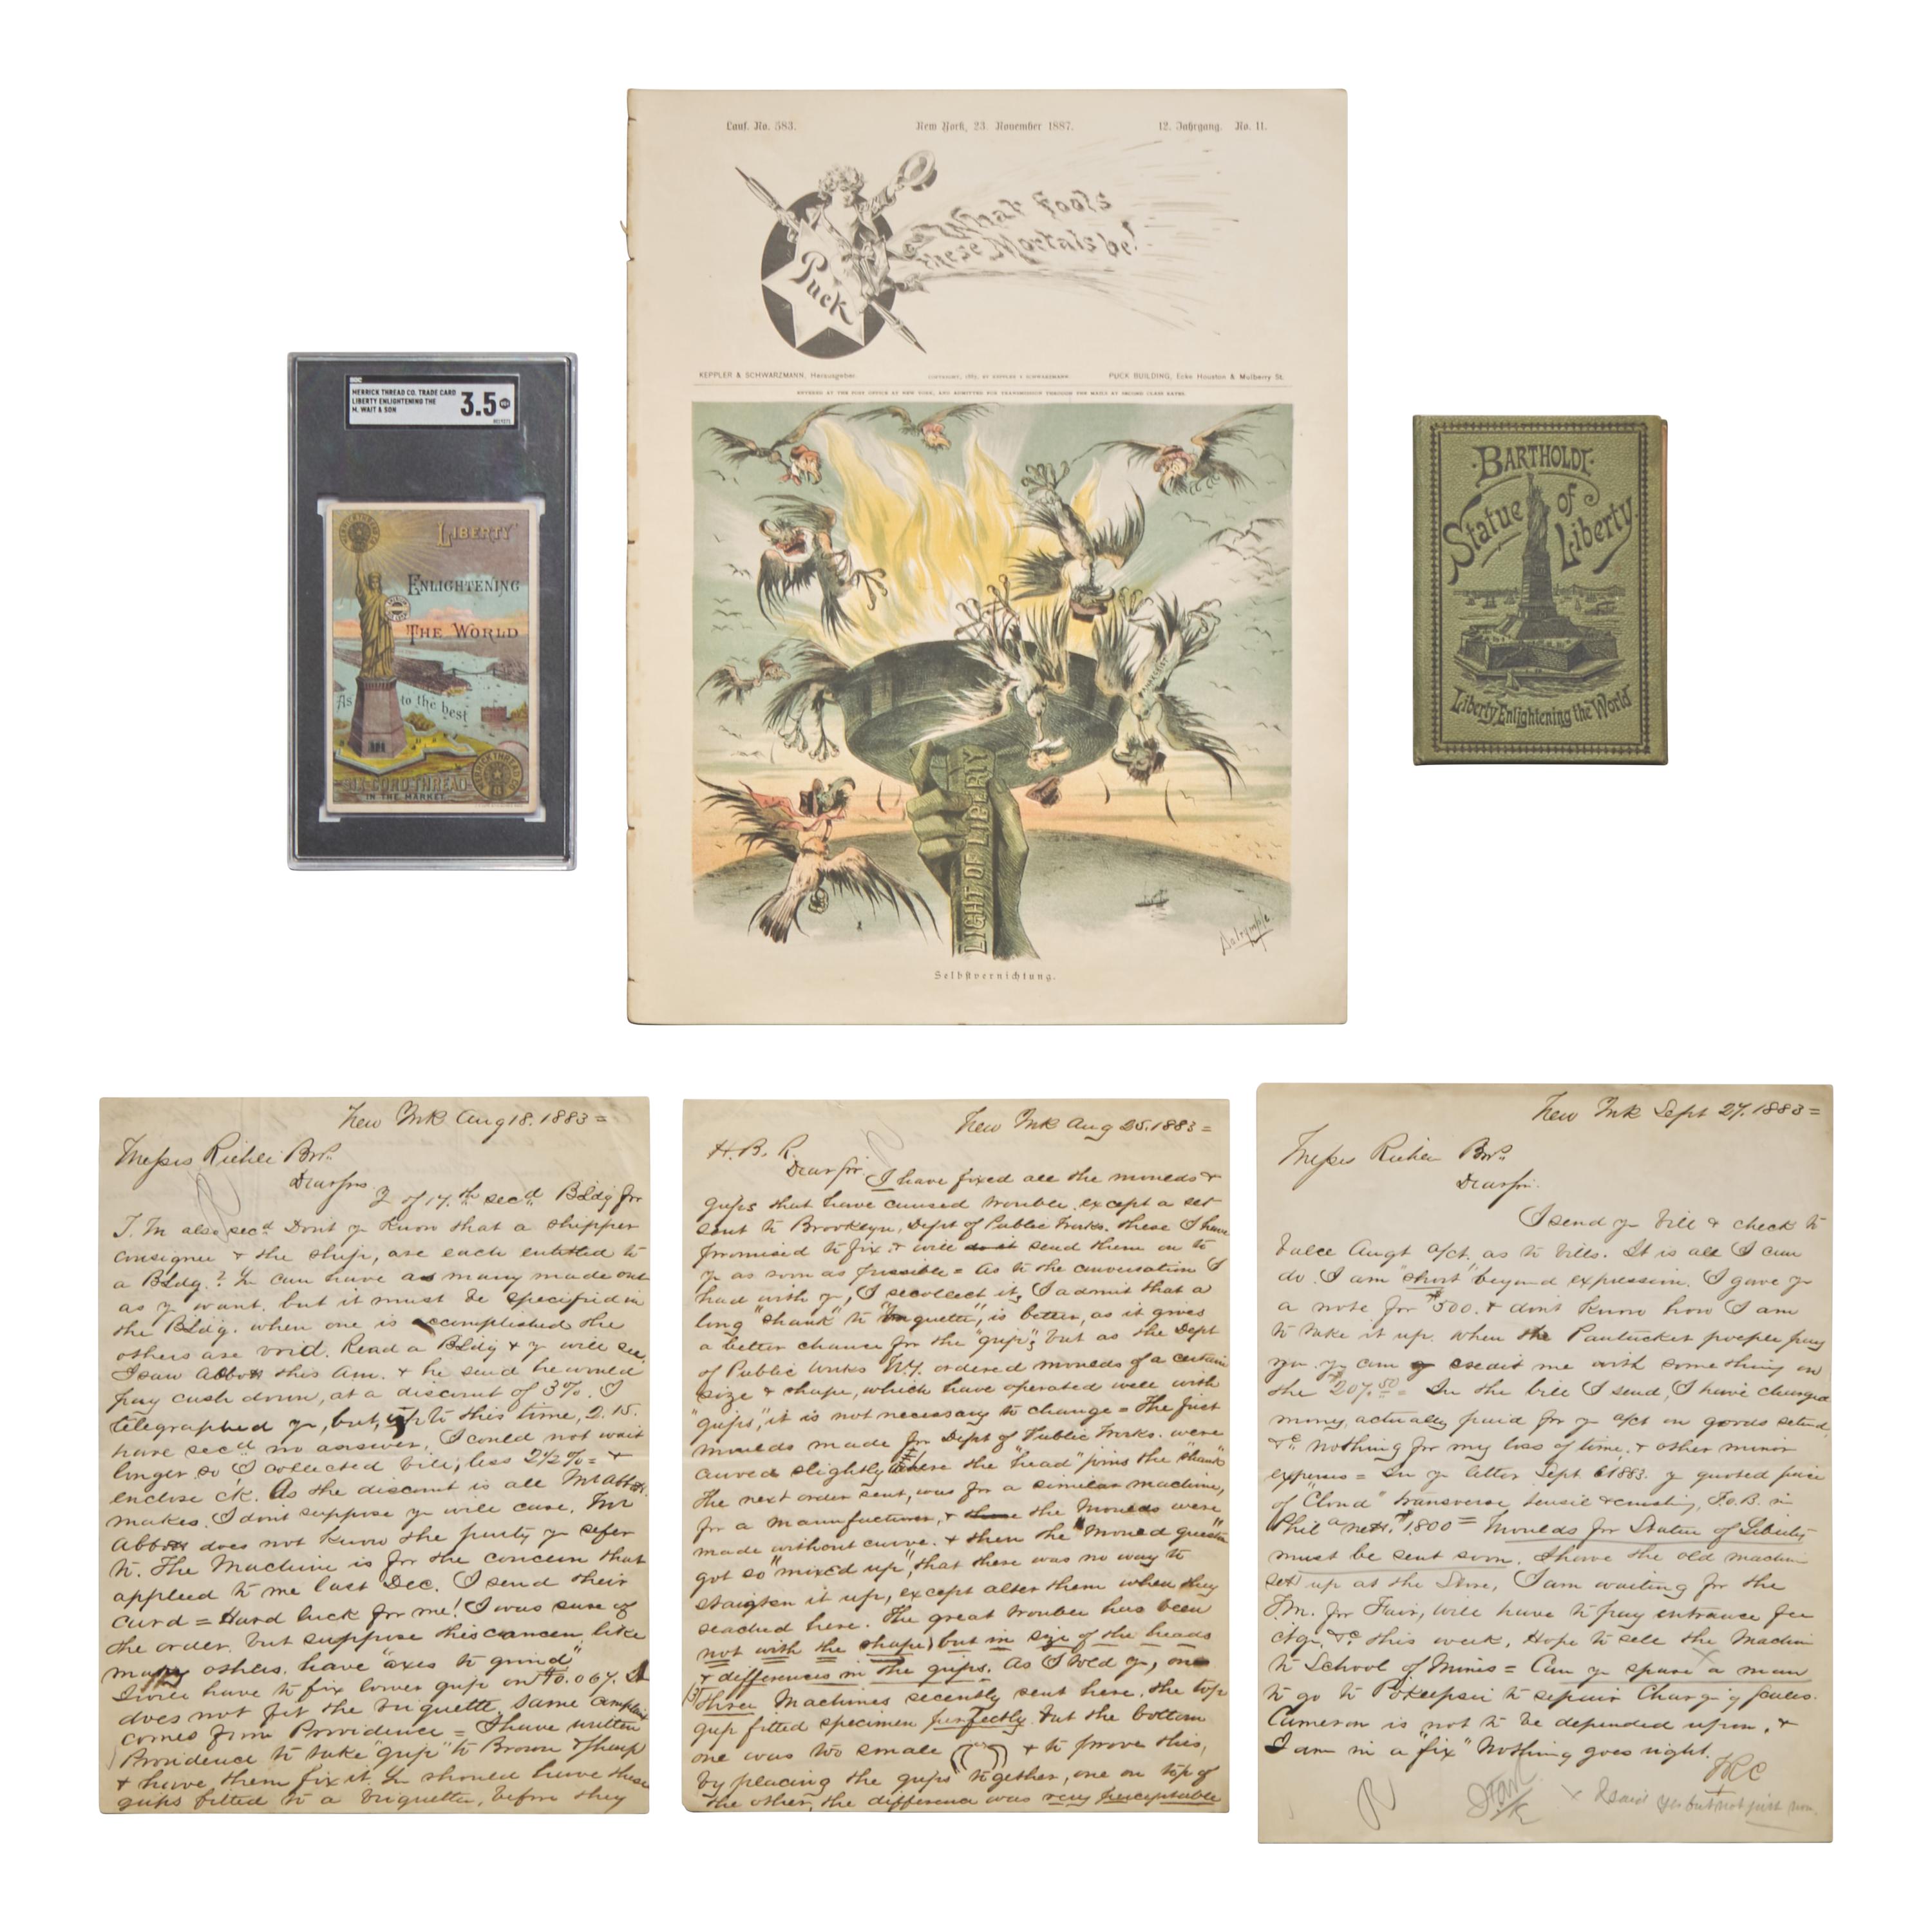 Lauf. No. 583. New York, 23. November 1887. 12. Jahrgang. No. 11.
What fools
these Mortals be!
Puck
KEPPLER & SCHWARZMANN, Herausgeber. COPYRIGHT, BY KEPPLER & SCHWARZMANN. PUCK BUILDING, Ecke Houston & Mulberry St.
ENTERED AT THE POST OFFICE AT NEW YORK, AND ADMITTED FOR TRANSMISSION THROUGH THE MAILS AT SECOND CLASS RATES.
LIGHT OF LIBERTY
Dalrymple
Selbstvernichtung.
SGC
MERRICK THREAD CO. TRADE CARD
LIBERTY ENLIGHTENING THE
M. WAIT & SON
3.5
LIBERTY
ENLIGHTENING
THE WORLD
As to the best
SIX CORD THREAD
IN THE MARKET
MERRICK THREAD CO
BARTHOLDI
Statue of
Liberty.
Liberty Enlightening the World
New York Aug 18. 1883 =
Messrs Riehle Bros.
Dear Sirs 2 of 17.th recd Bldg for
T. M also recd Dont y know that a shipper
consignee & the ship, are each entitled to
a Bldg.? Y can have as many made out
as y want. but it must be specified in
the Bldg. when one is accomplished the
others are void. Read a Bldg & y will see.
I saw Abbott this am. & he said he would
pay cash down, at a discount of 3%. I
telegraphed y, but, up to this time, 2.15.
have recd no answer, I could not wait
longer so I collected bill, less 2½% = &
enclose ck. As the discount is all Mr Abbott
makes. I dont suppose y will care. Mr
Abbott does not know the party y refer
to. The Machine is for the concern that
applied to me last Dec. I send their
card = Hard luck for me! I was sure of
the order. but suppose this concern like
many others. have "axes to grind"
I will have to fix lower grip on No. 067. It
does not fit the briquette, same complaint
comes from Providence = I have written
Providence to take "grip" to Brown & Sharp
& have them fix it. Y should have these
grips fitted to a briquette, before they
New York Aug 25. 1883 =
H. B. R.
Dear Sir. I have fixed all the moulds &
grips that have caused trouble, except a set
sent to Brooklyn, Dept of Public Works. these I have
promised to fix. & will send them on to
y as soon as possible = As to the conversation I
had with y, I recollect it, I admit that a
long "shank" to "briquette", is better, as it gives
a better chance for the "grip", but as the Dept
of Public Works N.Y. ordered moulds of a certain
size & shape, which have operated well with
"grips", it is not necessary to change = The first
moulds made for Dept of Public Works. were
curved slightly where the "head" joins the "shank"
The next order sent, was for a similar machine,
for a manufacturer, & the Moulds were
made without curve. & then the "Mould question
got so "mixed up", that there was no way to
straigten it up, except alter them when they
reached here. The great trouble has been
not with the shape, but in size of the heads
& differences in the grips. As I told y, on
(3) three Machines recently sent here, the top
grip fitted specimen perfectly. but the bottom
one was too small & to prove this,
by placing the grips together, one on top of
the other, the difference was very perceptable
New York Sept 27. 1883 =
Messrs Riehle Bros.
Dear Sir.
I send y bill & check to
balce Augt a/ct. as to bills. It is all I can
do. I am "short" beyond expression. I gave y
a note for $500. & dont know how I am
to take it up. When the Pautucket people pay
you. y can credit me with something on
the $207.50 = In the bill I send, I have charged
money, actually paid for y a/ct on goods
&c. nothing for my loss of time. & other minor
expenses = In y letter Sept 6 1883. y quoted price
of "Cloud" transverse, tensile & crushing, F.O.B. in
Phila nett. $1,800 = Moulds for Statue of Liberty
must be sent soon. I have the old machine
set up at the Store, I am waiting for the
T.M. for Fair, will have to pay entrance fee
ctge, &c this week. Hope to sell the Machine
to School of Mines = Can y spare a man
to go to Pokeepsie to repair Charging scales.
Cameron is not to be depended upon. &
I am in a "fix" Nothing goes right.
R